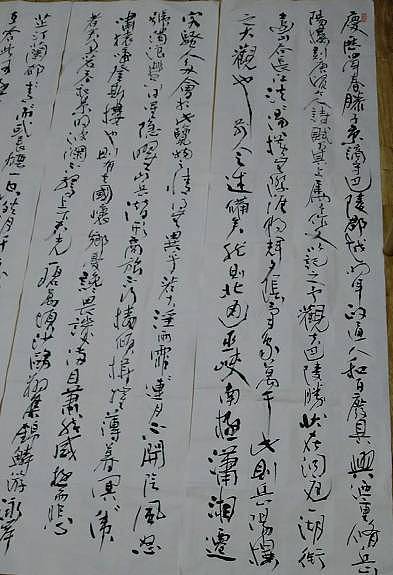 慶歷四年春滕子京謫守巴陵郡越明年政通人和百廢具興迺重脩岳
陽樓刻唐賢今人詩賦其上屬予作文以記之予觀夫巴陵勝狀在洞庭一湖銜
遠山吞長江浩浩湯湯橫無際涯朝暉夕陰氣象萬千此則岳陽樓
之大觀也前人之述備矣然則北通巫峽南極瀟湘遷
客騷人多會於此覽物之情得無異乎若夫淫雨霏霏連月不開陰風怒
號濁浪排空日星隱曜山岳潛形商旅不行檣傾楫摧薄暮冥冥虎
嘯猿啼登斯樓也則有去國懷鄉憂讒畏譏滿目蕭然感極而悲
者矣至若春和景明波瀾不驚上下天光一碧萬頃沙鷗翔集錦鱗游泳岸
芷汀蘭郁郁青青而或長煙一空皓月千